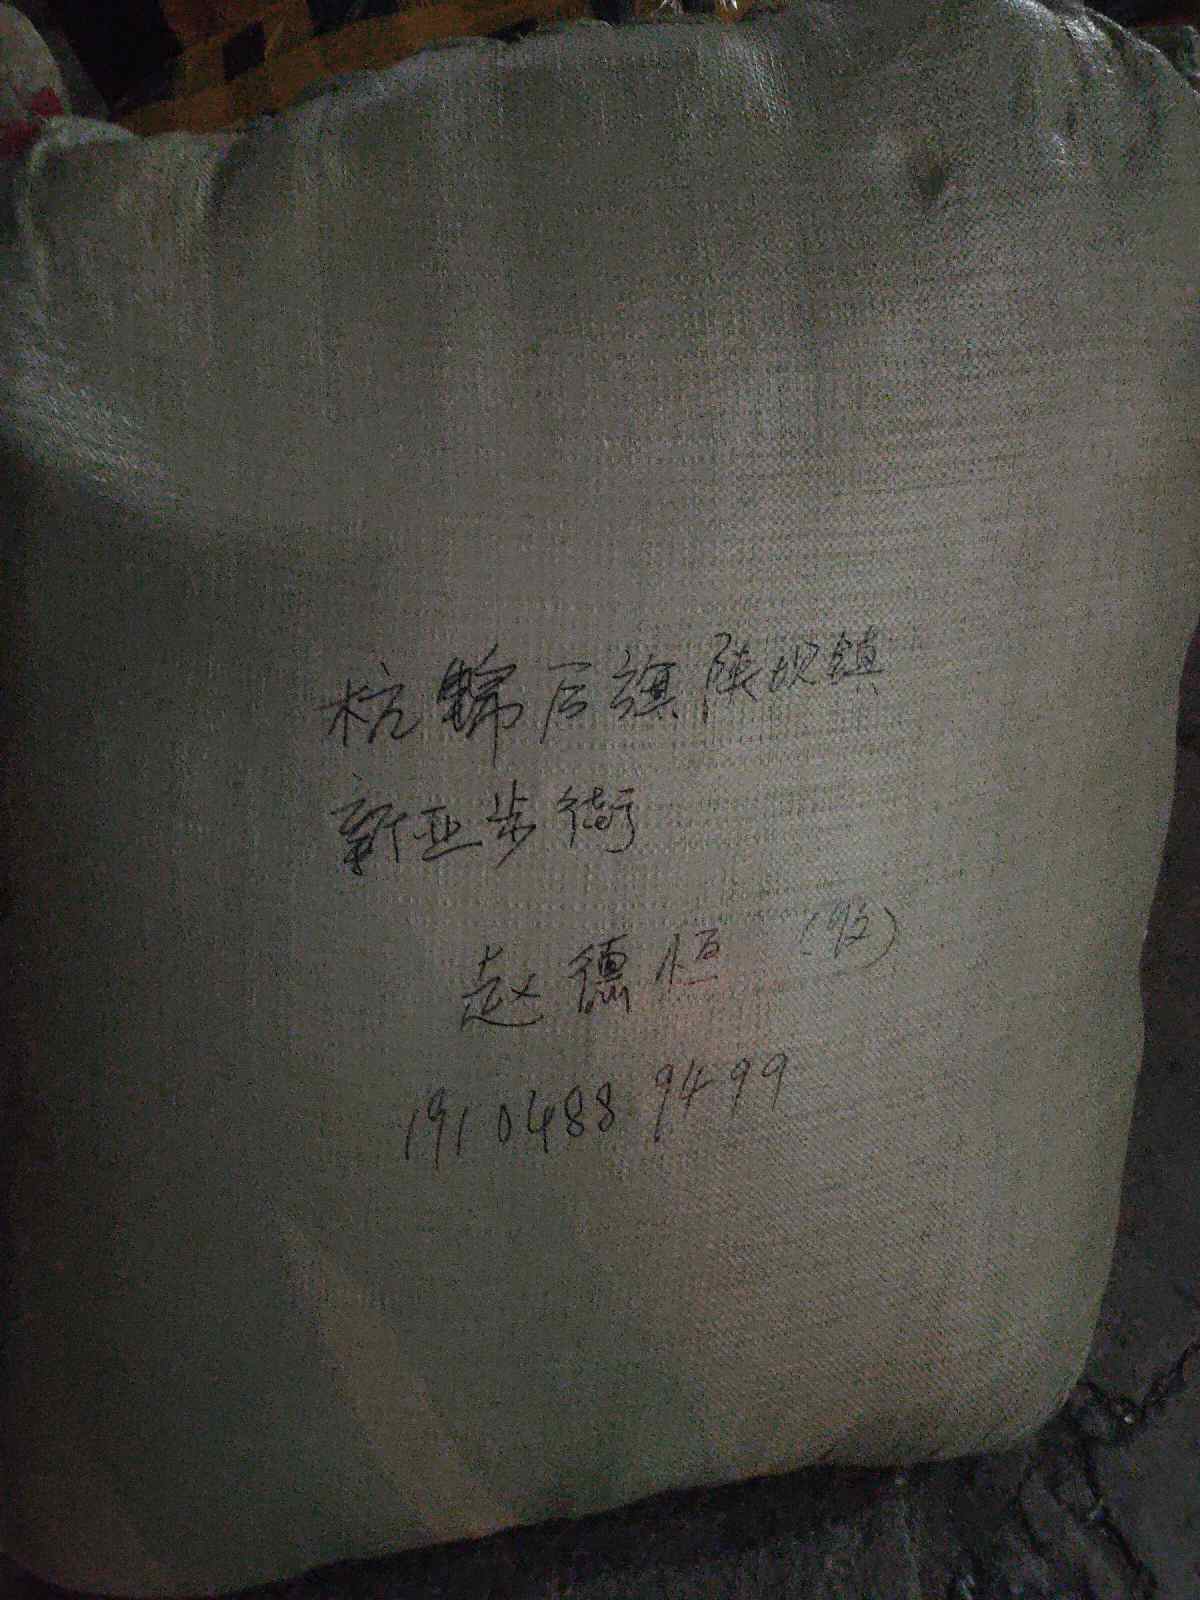 杭锦后旗陕坝镇
新亚步街
赵德恒 (收)
19104889499